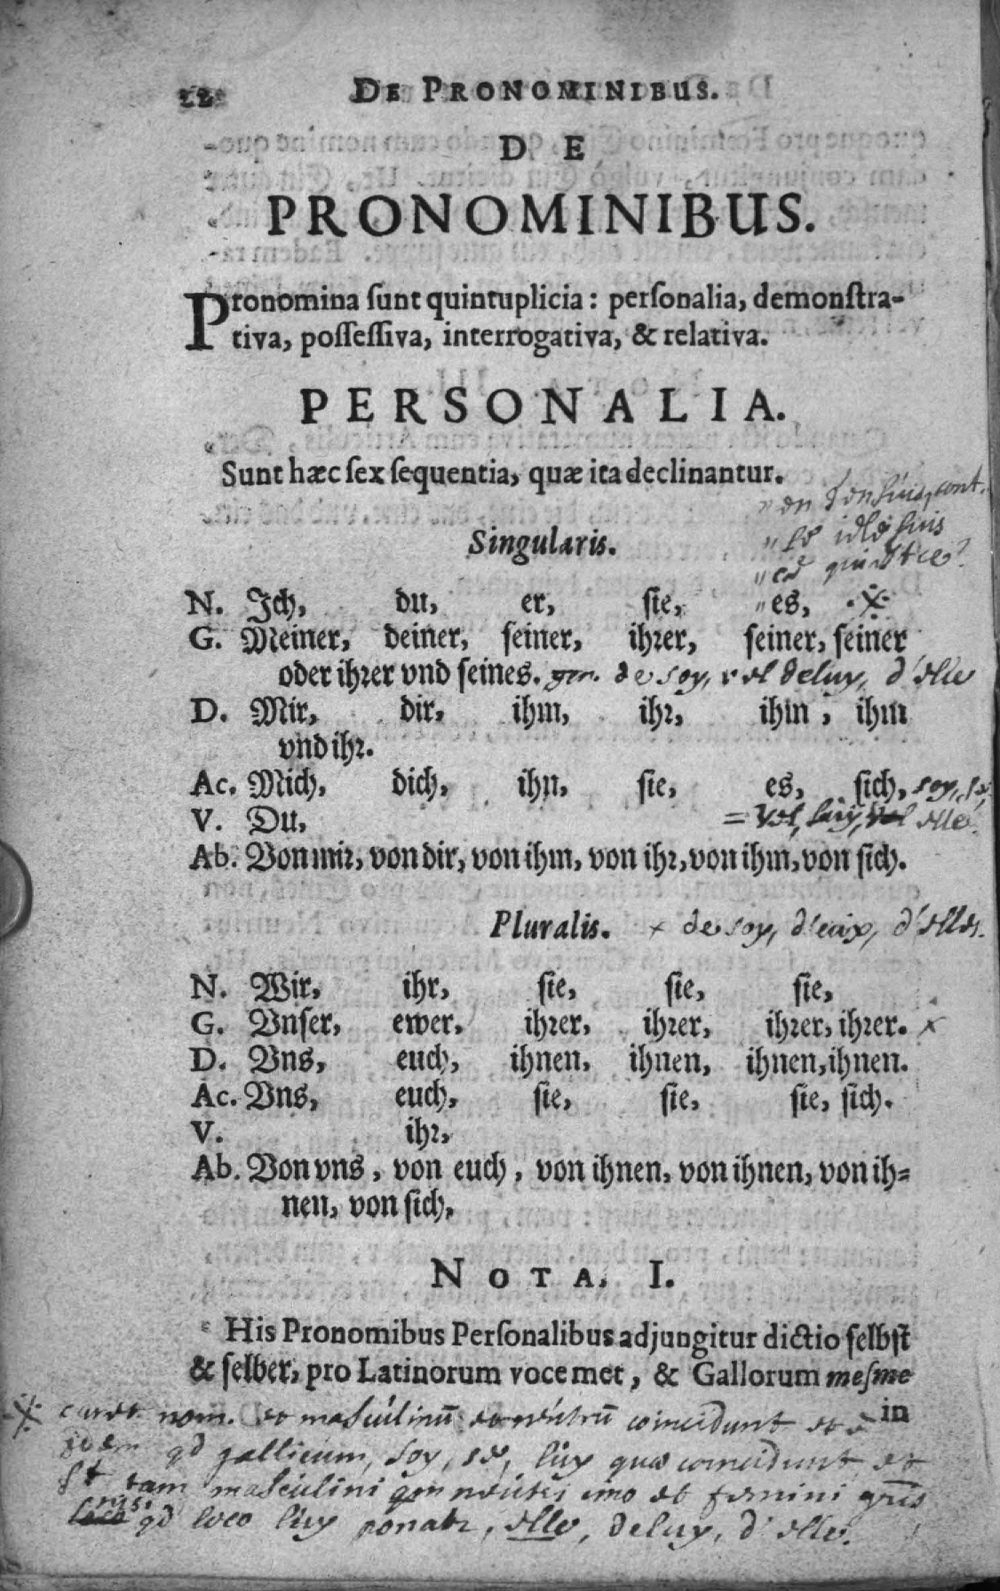 22 DE PRONOMINIBUS.
DE
PRONOMINIBUS.
Pronomina ſunt quintuplicia: perſonalia, demonſtra-
tiva, poſſeſſiva, interrogativa, & relativa.
PERSONALIA.
Sunt hæc ſex ſequentia, quæ ita declinantur.
Singularis.
N. Ich, du, er, ſie, es,
G. Meiner, deiner, ſeiner, ihrer, ſeiner, ſeiner
oder ihrer vnd ſeines. gen. de soy, vel deluy, d'elle
D. Mir, dir, ihm, ihr, ihm, ihm
vnd ihr.
Ac. Mich, dich, ihn, ſie, es, ſich, soy, se,
V. Du, = vel, luy, vel elle
Ab. Von mir, von dir, von ihm, von ihr, von ihm, von ſich.
Pluralis. × de soy, d'eux, d'elles.
N. Wir, ihr, ſie, ſie, ſie,
G. Vnſer, ewer, ihrer, ihrer, ihrer, ihrer. ×
D. Vns, euch, ihnen, ihnen, ihnen, ihnen.
Ac. Vns, euch, ſie, ſie, ſie, ſich.
V. ihr,
Ab. Von vns, von euch, von ihnen, von ihnen, von ih-
nen, von ſich,
NOTA. I.
His Pronomibus Perſonalibus adjungitur dictio ſelbſt
& ſelber, pro Latinorum voce met, & Gallorum meſme
in
nom. et masculinū et neutrū coincidunt et
qd gallicum, soy, se, luy quæ coincidunt et
tam masculini qm neutri imo et femini gñis
nisi qd loco luy ponatr, elle, deluy, d'elle.